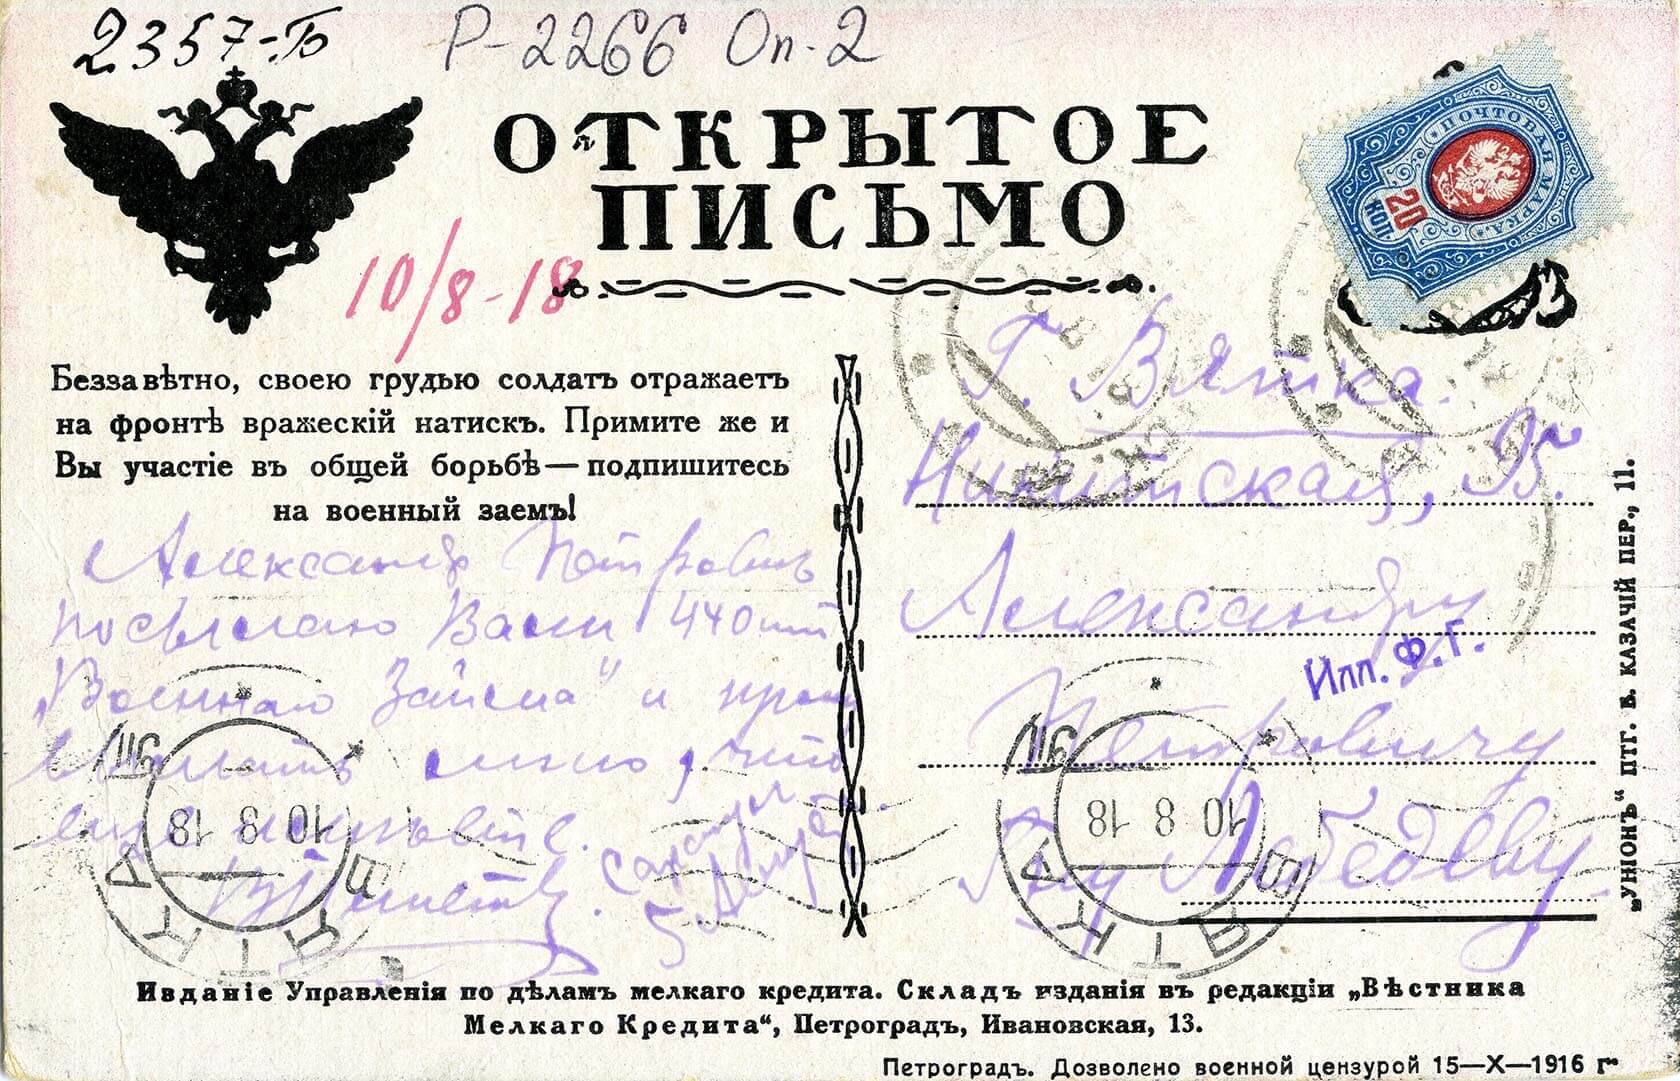 2357-Б
Р-2266 Оп-2
ОТКРЫТОЕ
ПИСЬМО
20
КОП.
ПОЧТОВАЯ МАРКА.
10/8-18
Беззавѣтно, своею грудью солдатъ отражаетъ
на фронтѣ вражескій натискъ. Примите же и
Вы участіе въ общей борьбѣ—подпишитесь
на военный заемъ!
Александр Петрович
посылаю Вам 440 шт
„Военнаго Займа" и прошу
что
еще
Сарапул
5 Августа
Г. Вятка.
Никитская,
Александру
Петровичу
Г-ну Лебедеву
Илл. Ф. Г.
ВЯТКА
10 8 18
VIII
ВЯТКА
10 8 18
VIII
„УНІОНЪ" ПТГ. Б. КАЗАЧІЙ ПЕР., 11.
Изданіе Управленія по дѣламъ мелкаго кредита. Складъ изданія въ редакціи „Вѣстника
Мелкаго Кредита", Петроградъ, Ивановская, 13.
Петроградъ. Дозволено военной цензурой 15—X—1916 г